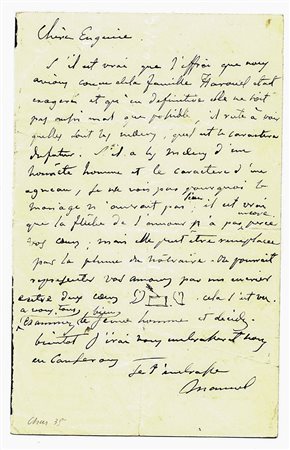 Chère Eugénie.
S'il est vrai que l'effroi que nous
avions conçu de la famille Harouel était
exagéré et qu'en définitive elle ne soit
pas aussi mal que possible, il reste à voir
quelles sont les mœurs, quel est le caractère
du futur. S'il a les mœurs d'un
honnête homme et le caractère d'un
agneau, je ne vois pas pourquoi le
mariage n'aurait pas lieu; il est vrai
que la flèche de l'amour n'a pas encore percé
vos cœurs; mais elle peut être remplacée
par la plume du notaire. On pourrait
représenter vos amours par un encrier
entre deux cœurs cela s'est vu.
à vous tous, bien
Examinez le jeune homme et décidez
bientôt j'irai vous embrasser et nous
en causerons
Je t'embrasse
Manuel